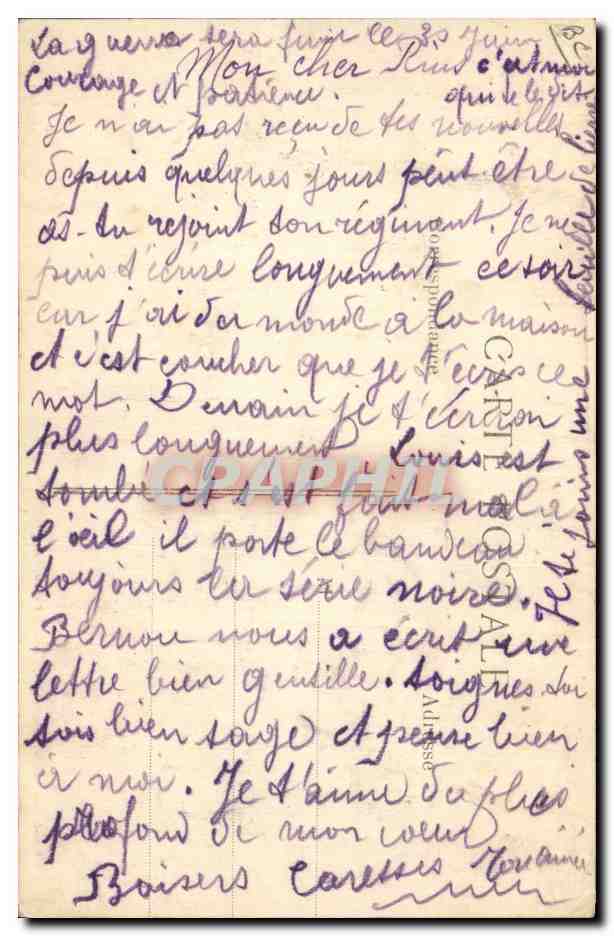 La guerre sera finie le 30 Juin
Courage et patience. c'est moi
qui te le dit
Mon cher
Je n'ai pas reçu de tes nouvelles
depuis quelques jours peut être
as-tu rejoint ton régiment. Je ne
puis t'écrire longuement ce soir
car j'ai du monde à la maison
et c'est coucher que je t'écris ce
mot. Demain je t'écrirai
plus longuement Louis est
tombé et s'est fait mal à
l'œil il porte le bandeau
toujours la série noire.
Bernou nous a écrit une
lettre bien gentille. soignes toi
sois bien sage et pense bien
à moi. Je t'aime du plus
profond de mon coeur
Baisers Caresses
Je te joins une feuille de lierre
CARTE POSTALE
Correspondance
Adresse
CPAPHIL